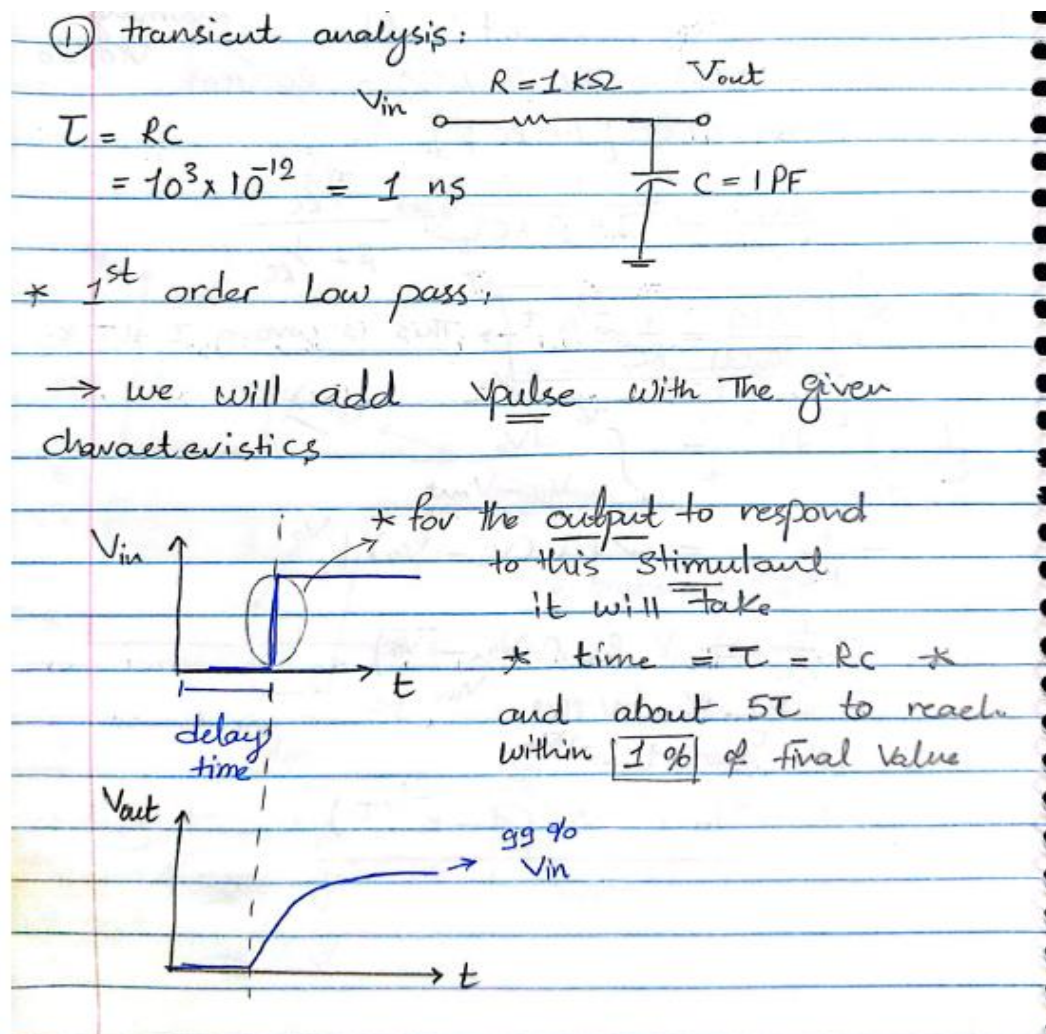 ① transient analysis:
R = 1 kΩ
Vin
Vout
τ = RC
= 10³ x 10⁻¹² = 1 ns
C = 1 PF
* 1st order Low pass,
→ we will add vpulse with The given
characteristics
* for the output to respond
to this stimulant
it will Take
* time = τ = RC *
and about 5τ to reach
within 1 % of final Value
Vin
t
delay
time
Vout
99 %
Vin
t